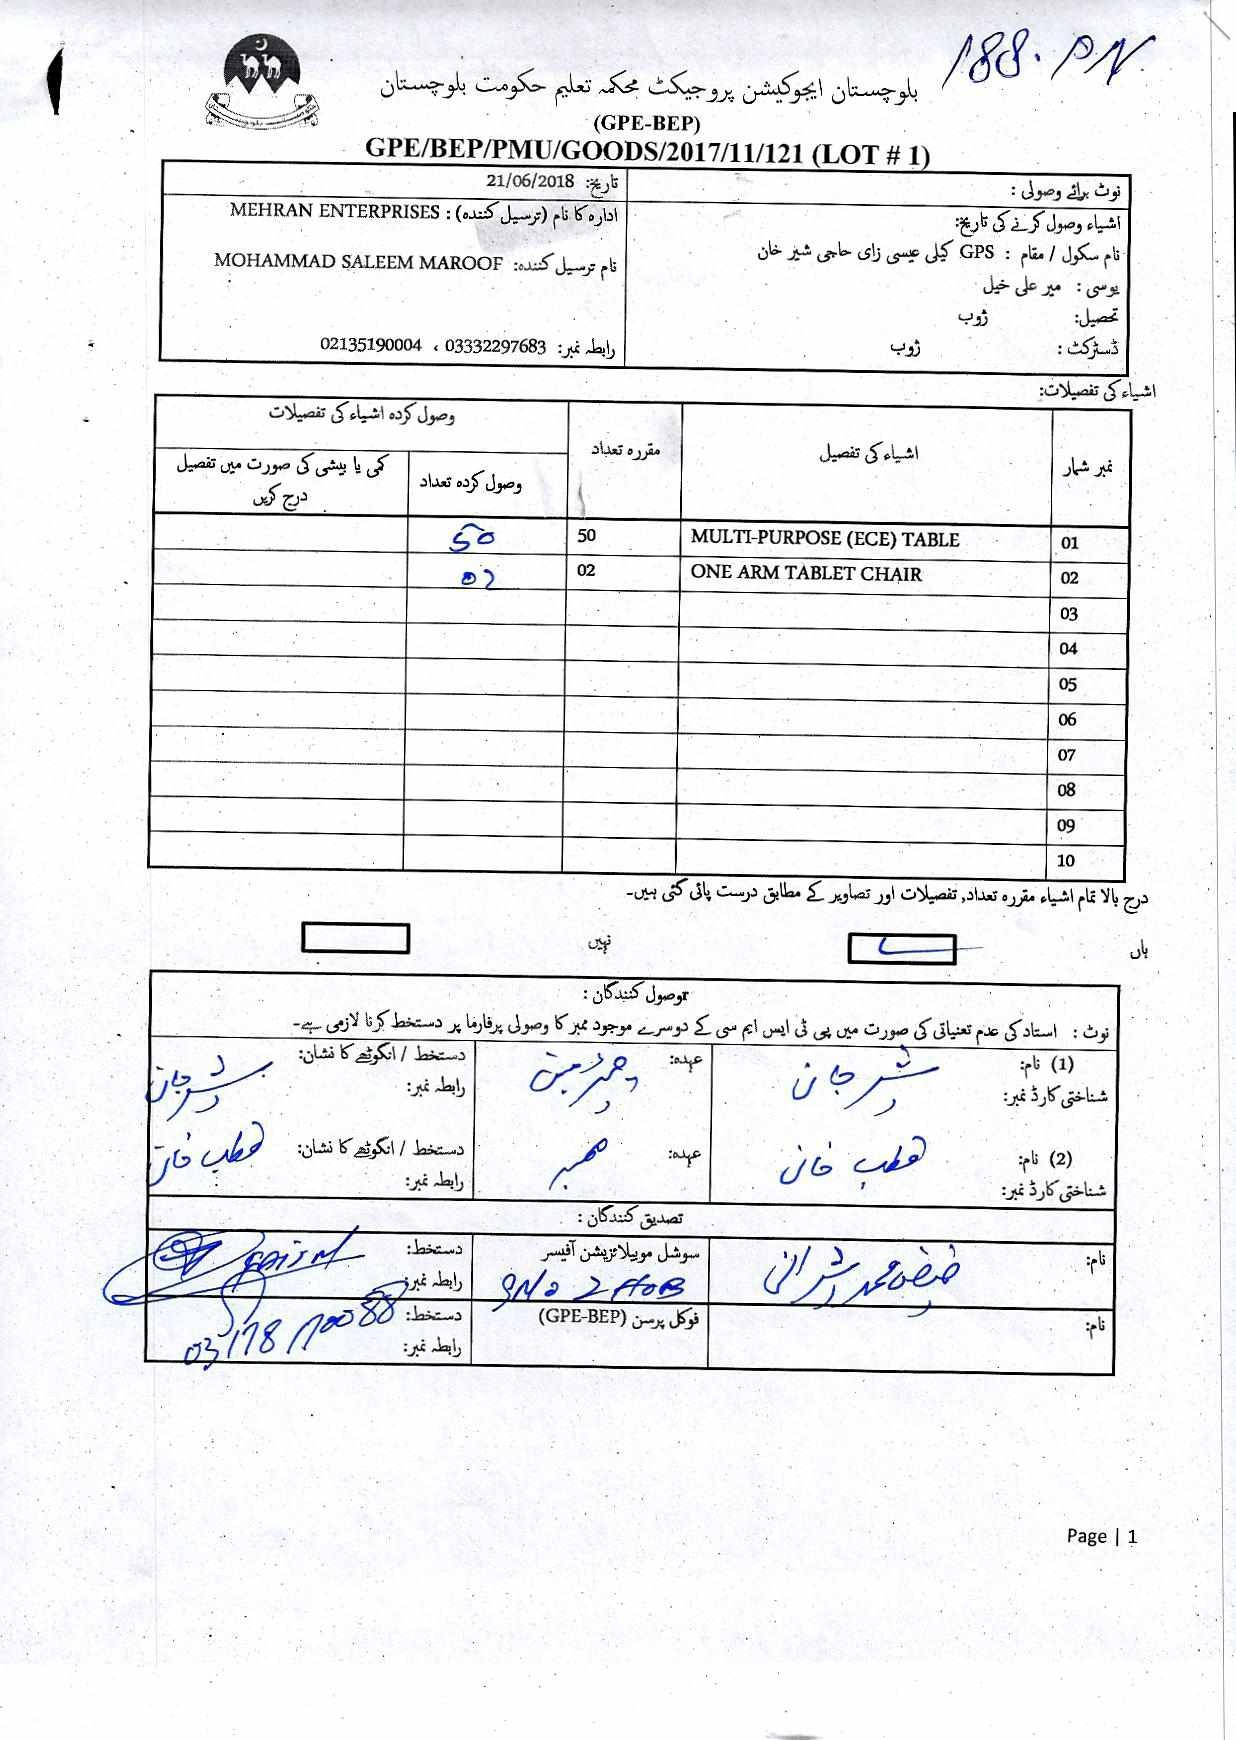 188. PN
بلوچستان ایجوکیشن پروجیکٹ محکمہ تعلیم حکومت بلوچستان
(GPE-BEP)
GPE/BEP/PMU/GOODS/2017/11/121 (LOT # 1)
نوٹ برائے وصولی :
اشیاء وصول کرنے کی تاریخ:
نام سکول / مقام : GPS کیلی عیسی زای حاجی شیر خان
یوسی : میر علی خیل
تحصیل: ژوب
ڈسٹرکٹ : ژوب
تاریخ: 21/06/2018
ادارہ کا نام (ترسیل کنندہ) : MEHRAN ENTERPRISES
نام ترسیل کنندہ: MOHAMMAD SALEEM MAROOF
رابطہ نمبر: 03332297683 ، 02135190004
اشیاء کی تفصیلات:
نمبر شمار اشیاء کی تفصیل مقررہ تعداد وصول کردہ اشیاء کی تفصیلات
وصول کردہ تعداد کمی یا بیشی کی صورت میں تفصیل درج کریں
01 MULTI-PURPOSE (ECE) TABLE 50 50
02 ONE ARM TABLET CHAIR 02 02
03
04
05
06
07
08
09
10
درج بالا تمام اشیاء مقررہ تعداد, تفصیلات اور تصاویر کے مطابق درست پائی گئی ہیں۔
ہاں نہیں
وصول کنندگان :
نوٹ : استاد کی عدم تعنیاتی کی صورت میں پی ٹی ایس ایم سی کے دوسرے موجود ممبر کا وصولی پرفارما پر دستخط کرنا لازمی ہے۔
(1) نام: شیر جان عہدہ: چیرمین دستخط / انگوٹھے کا نشان: شیر جان
شناختی کارڈ نمبر: رابطہ نمبر:
(2) نام: قطب خان عہدہ: ممبر دستخط / انگوٹھے کا نشان: قطب خان
شناختی کارڈ نمبر: رابطہ نمبر:
تصدیق کنندگان :
نام: فیض محمد شیرانی سوشل موبیلائزیشن آفیسر دستخط:
SMO ZHOB رابطہ نمبر:
نام: فوکل پرسن (GPE-BEP) دستخط:
رابطہ نمبر:
Page | 1